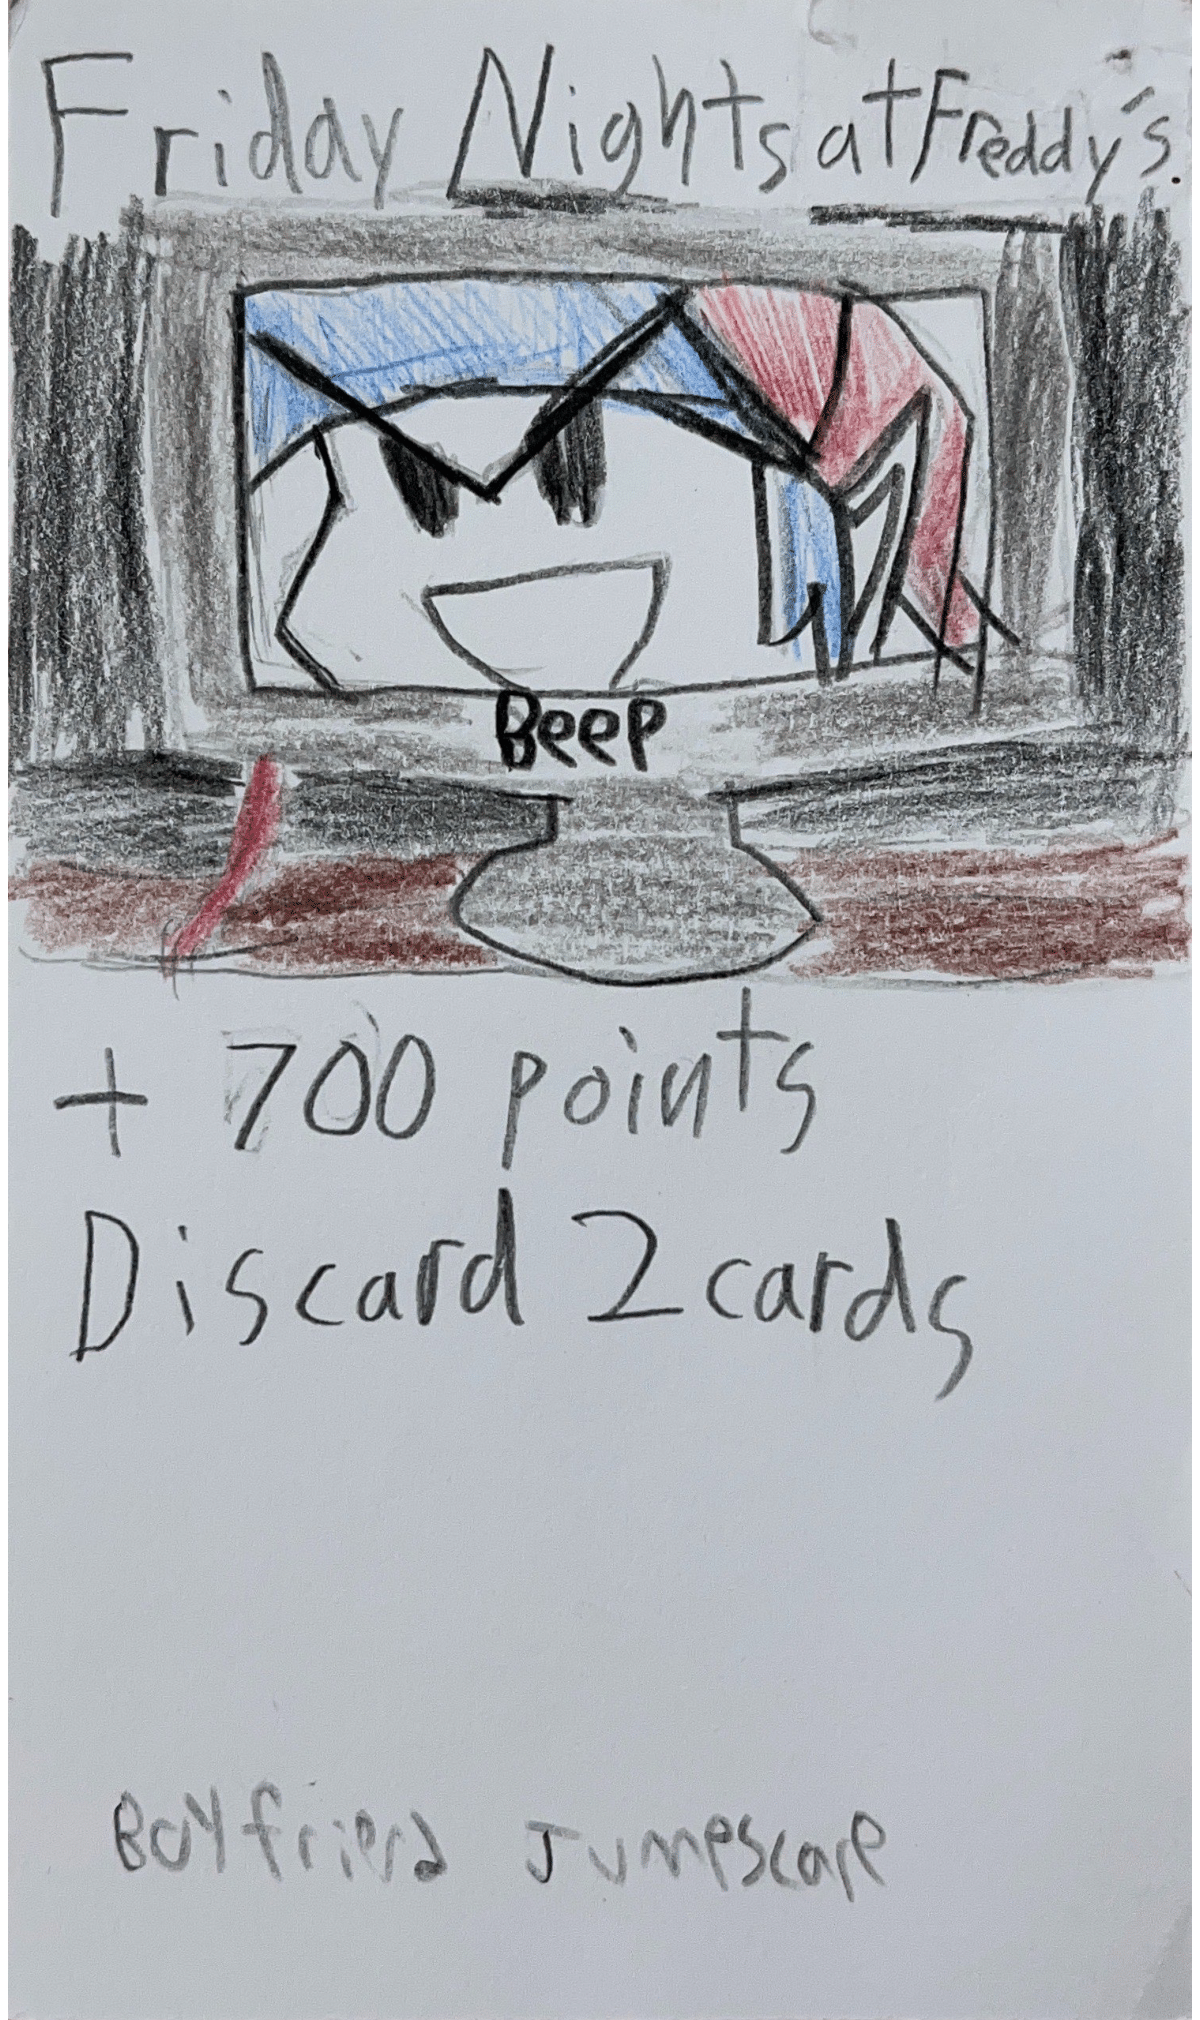 Friday Nights at Freddy's.
Beep
+ 700 points
Discard 2 cards
Boyfriend Jumpscare